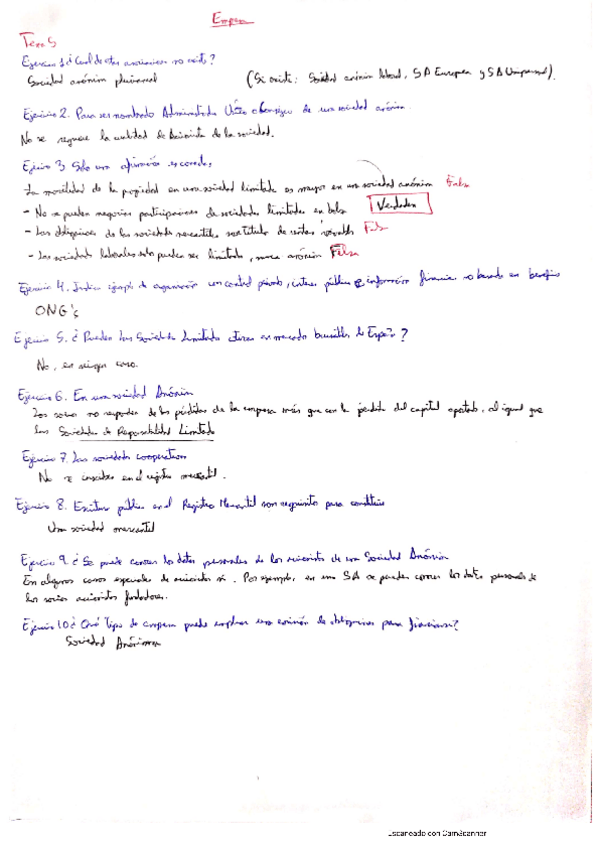 Empresa
Tema 5
Ejercicio 1 ¿Cual de estas no existe?
Sociedad anónima plurianual (Si existe: Sociedad anónima laboral, SA Europea y SA Unipersonal).
Ejercicio 2. Para ser nombrado Administrador Único de una sociedad anónima
No se requiere la cualidad de accionista de la sociedad.
Ejercicio 3. Solo una afirmación es correcta
La movilidad de la propiedad en una sociedad limitada es mayor en una sociedad anónima Falsa
- No se pueden negociar participaciones de sociedades limitadas en bolsa Verdadera
- Las obligaciones de las sociedades mercantiles son títulos de rentas variables Falsa
- Las sociedades laborales solo pueden ser limitadas, nunca anónimas Falsa
Ejercicio 4. Indica ejemplo de organización con control privado, interés público e información financiera no basada en beneficios
ONG's
Ejercicio 5. ¿Pueden las Sociedades Limitadas cotizar en mercados bursátiles de España?
No, en ningún caso.
Ejercicio 6. En una sociedad Anónima
Los socios no responden de las pérdidas de la empresa más que con la pérdida del capital aportado, al igual que
las Sociedades de Responsabilidad Limitada
Ejercicio 7. Las sociedades cooperativas
No se inscriben en el registro mercantil.
Ejercicio 8. Escritura pública en el Registro Mercantil son requisitos para constituir
Una sociedad mercantil
Ejercicio 9 ¿Se puede conocer los datos personales de los accionistas de una Sociedad Anónima
En algunos casos especiales de accionistas si. Por ejemplo, en una SA se pueden conocer los datos personales de
los socios accionistas fundadores.
Ejercicio 10 ¿Qué Tipo de empresa puede emplear una emisión de obligaciones para financiarse?
Sociedad Anónima
Escaneado con CamScanner